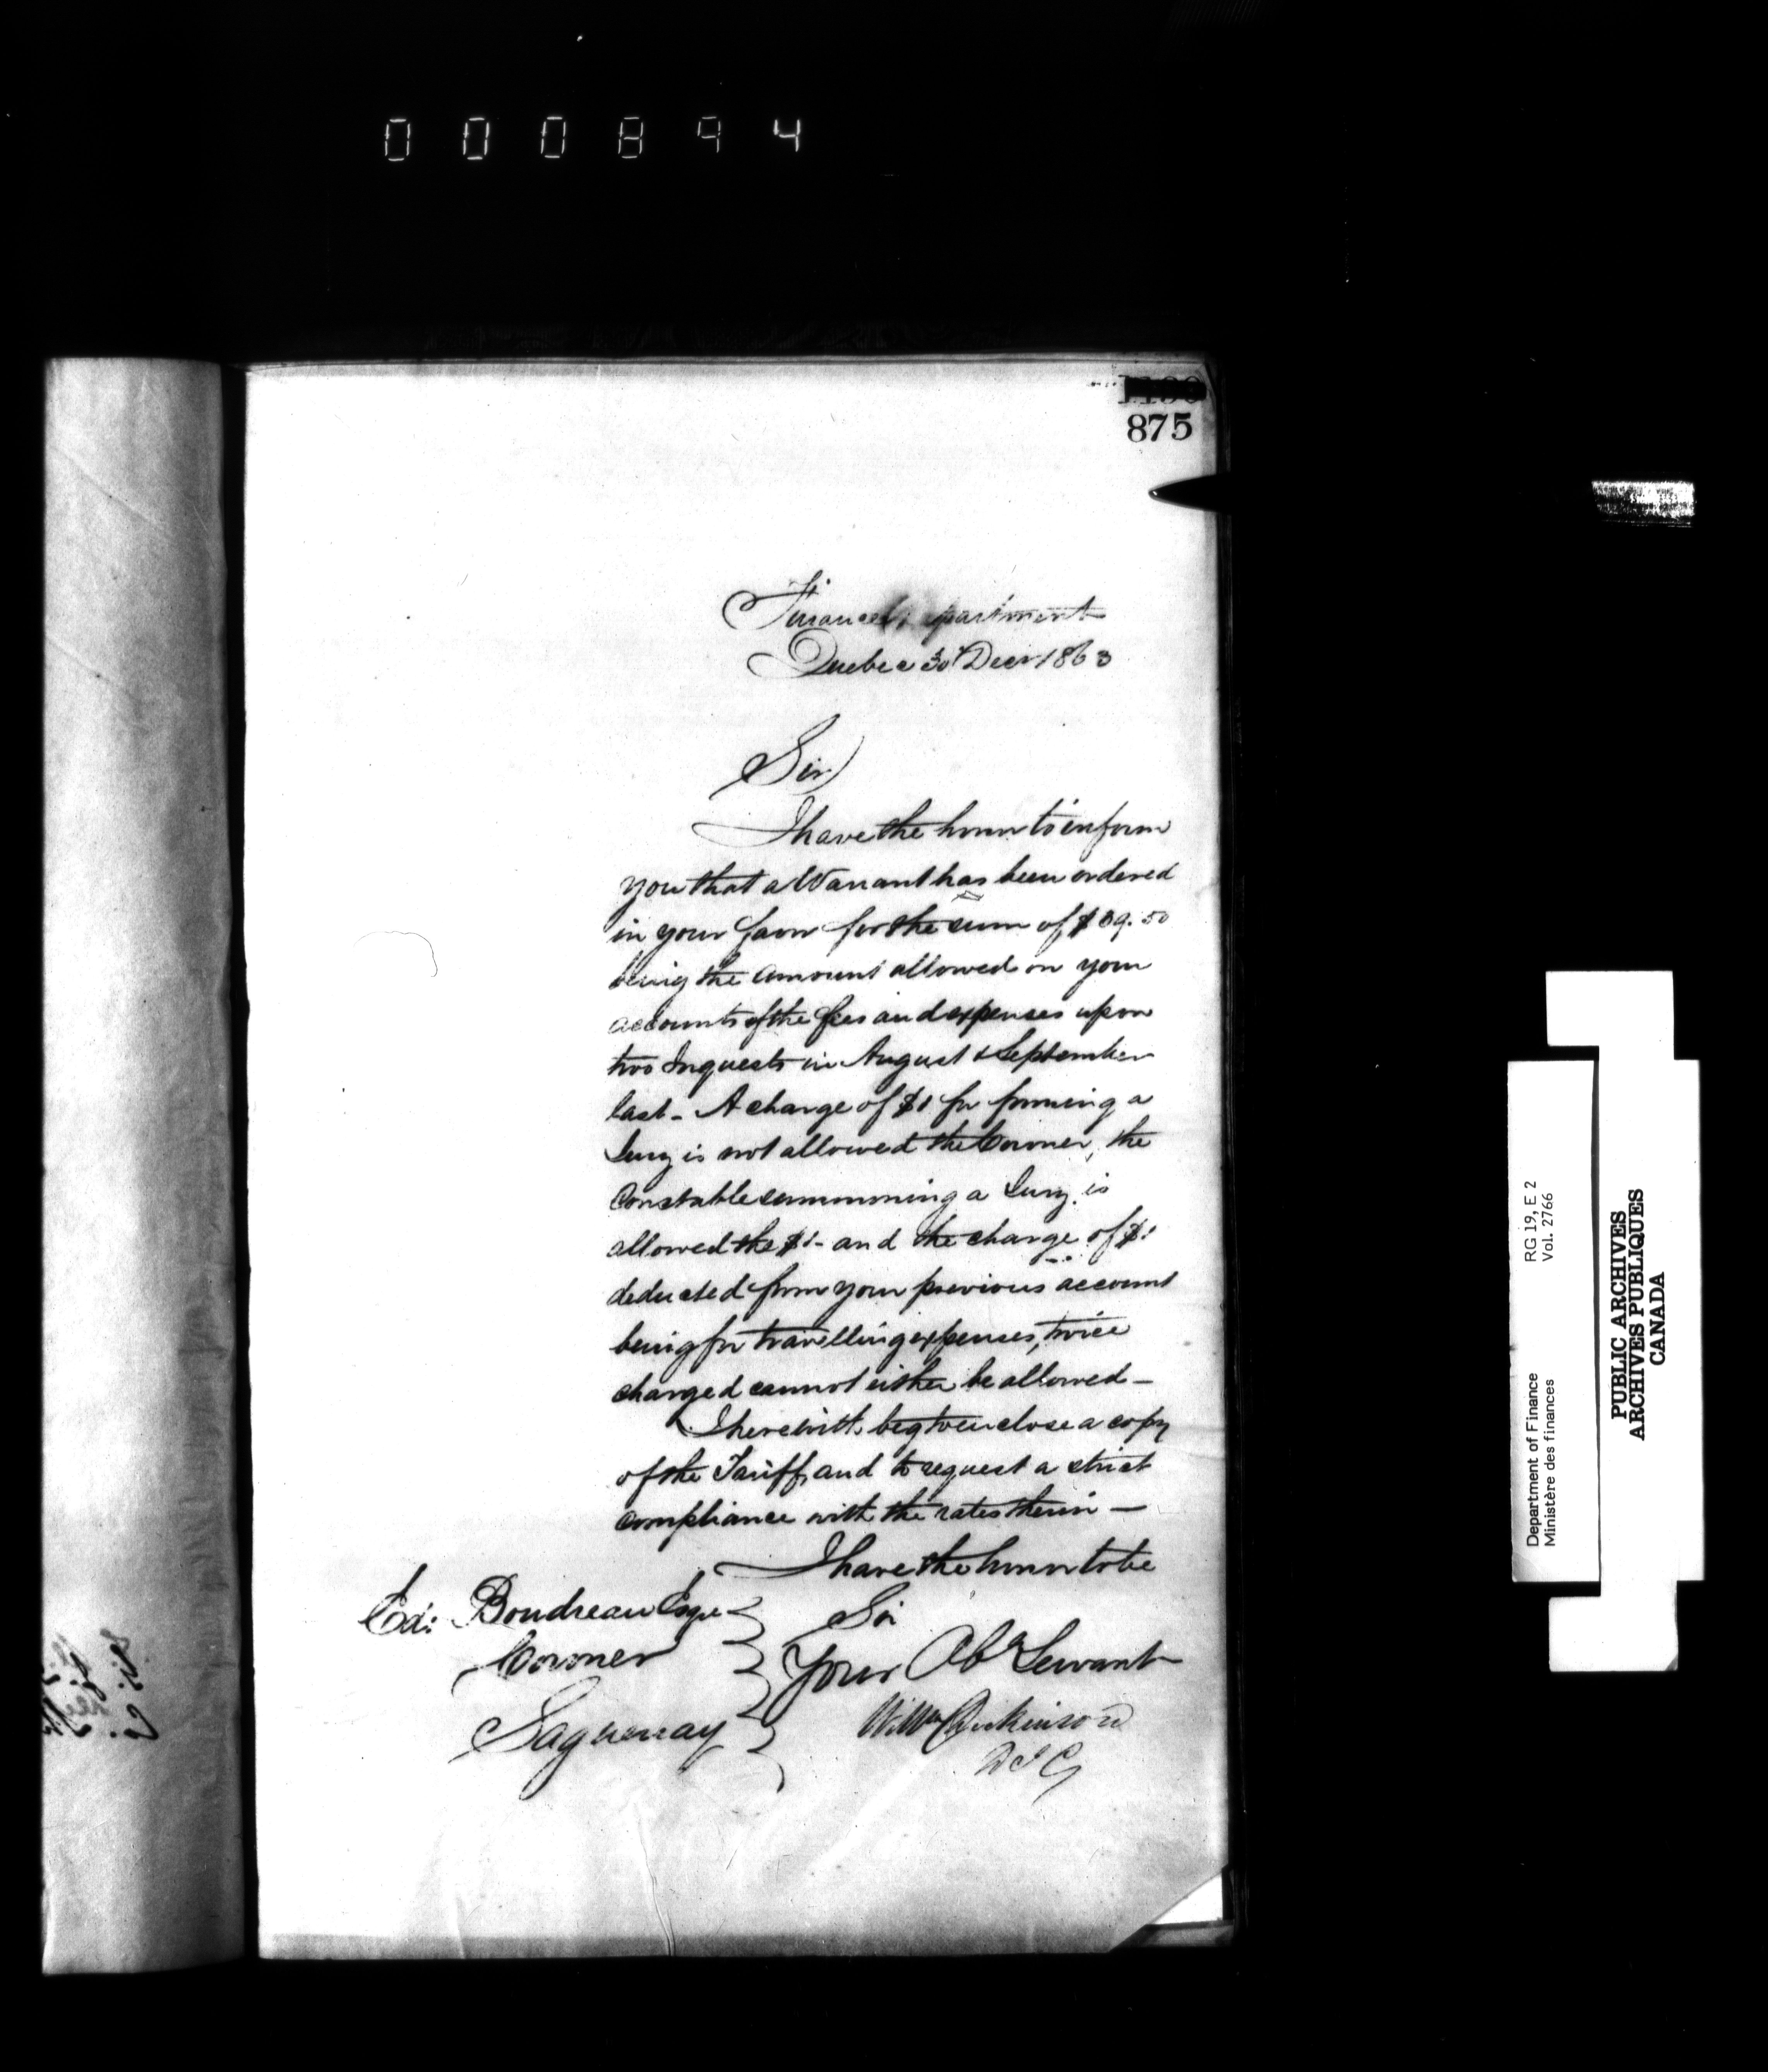 000894
875
Finance Department
Quebec 30 Decr 1863
Sir
I have the honor to inform
you that a Warrant has been ordered
in your favor for the sum of $39.50
being the amount allowed on your
accounts of the fees and expenses upon
two Inquests in August & September
last - A charge of $1 for forming a
Jury is not allowed the Coroner, the
Constable summoning a Jury is
allowed the $1 - and the charge of $1
deducted from your previous account
being for travelling expenses, twice
charged cannot either be allowed -
I herewith beg to enclose a copy
of the Tariff, and to request a strict
compliance with the rates therein -
I have the honor to be
Sir
Your Obt Servant
Willm Dickinson
D I G
Ed: Boudreau Esqre
Coroner
Saguenay
RG 19, E 2
Vol. 2766
Department of Finance
Ministère des finances
PUBLIC ARCHIVES
ARCHIVES PUBLIQUES
CANADA